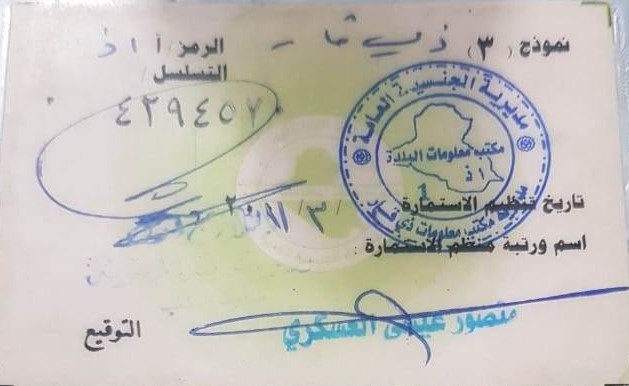 نموذج (٣) ذي قار الرمز/أ ١ ذ
التسلسل/
٤٢٩٤٥٧
مديرية الجنسية العامة
مكتب معلومات البلدة
١ ذ
مكتب معلومات ذي قار
تاريخ تنظيم الاستمارة / ٣ /
اسم ورتبة منظم الاستمارة :
منصور العسكري
التوقيع